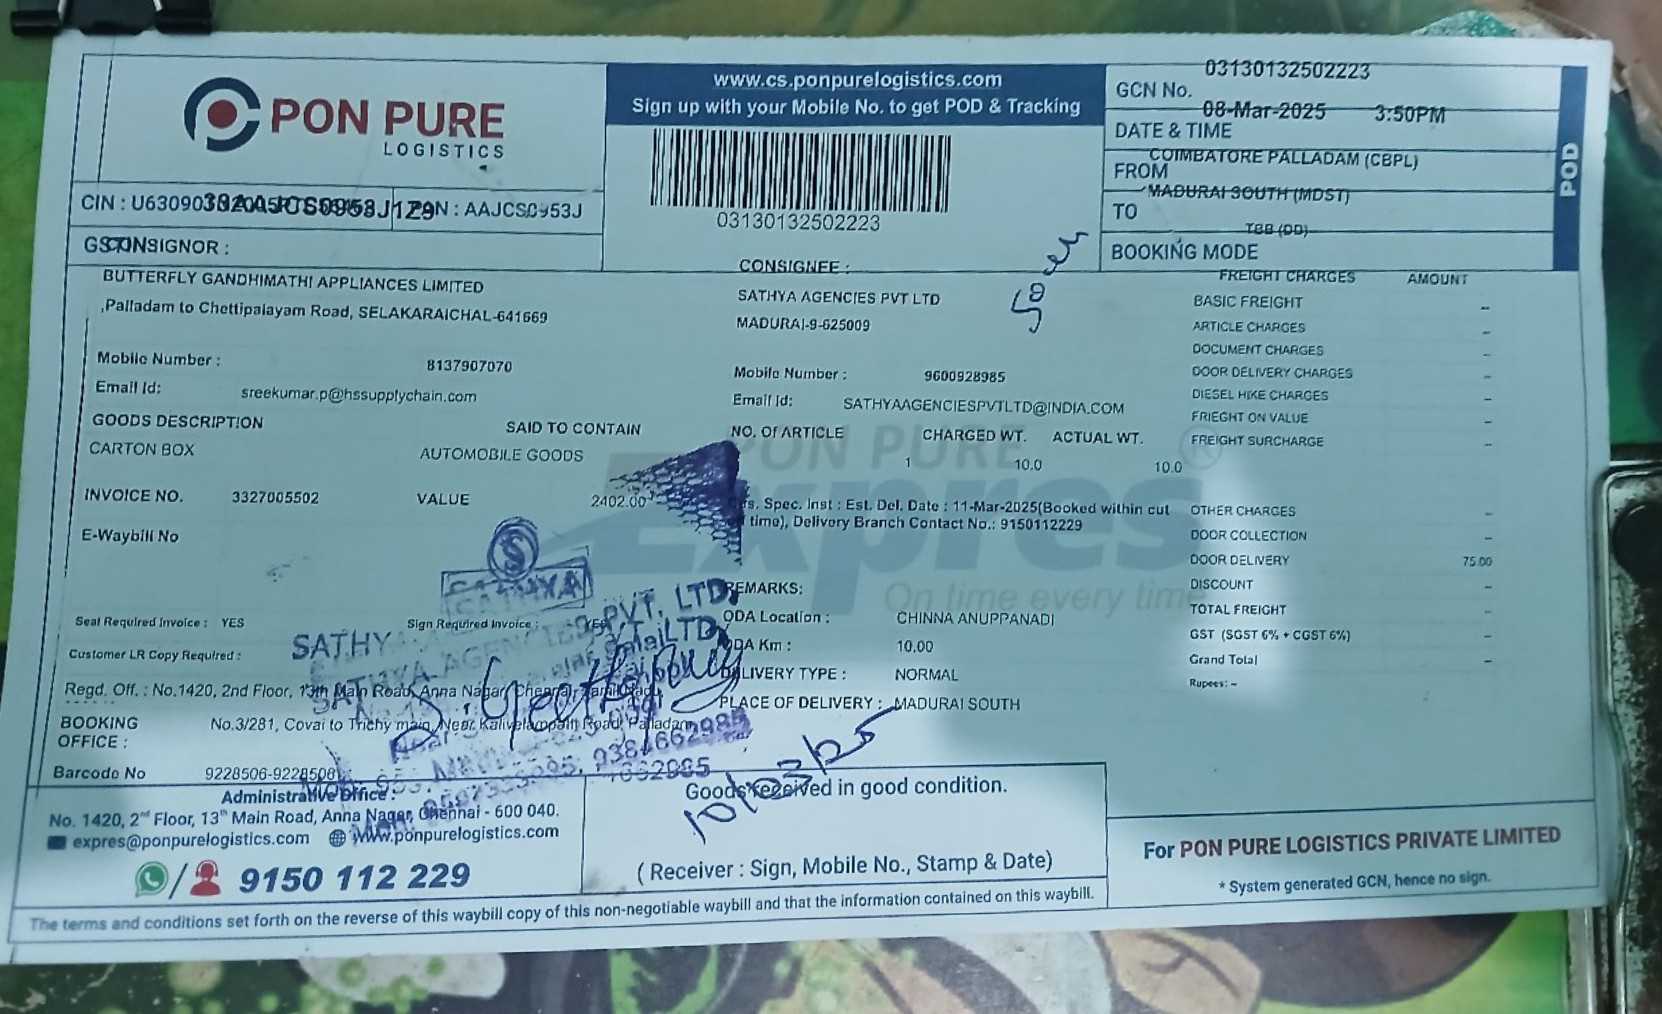 PON PURE
LOGISTICS
www.cs.ponpurelogistics.com
Sign up with your Mobile No. to get POD & Tracking
03130132502223
GCN No. 03130132502223
DATE & TIME 08-Mar-2025 3:50PM
FROM COIMBATORE PALLADAM (CBPL)
TO MADURAI SOUTH (MDST)
BOOKING MODE TBB (DD)
POD
CIN : 33AAJCS0953J1Z9 PAN : AAJCS0953J
GSTIN
CONSIGNOR :
BUTTERFLY GANDHIMATHI APPLIANCES LIMITED
,Palladam to Chettipalayam Road, SELAKARAICHAL-641669
Mobile Number : 8137907070
Email Id: sreekumar.p@hssupplychain.com
CONSIGNEE :
SATHYA AGENCIES PVT LTD
MADURAI-9-625009
Mobile Number : 9600928985
Email Id: SATHYAAGENCIESPVTLTD@INDIA.COM
GOODS DESCRIPTION SAID TO CONTAIN NO. Of ARTICLE CHARGED WT. ACTUAL WT.
CARTON BOX AUTOMOBILE GOODS 1 10.0 10.0
INVOICE NO. 3327005502 VALUE 2402.00
Spec. Inst : Est. Del. Date : 11-Mar-2025(Booked within cut
time), Delivery Branch Contact No.: 9150112229
E-Waybill No
PON PURE
Expres
On time every time
REMARKS:
Seal Required Invoice : YES Sign Required Invoice : YES
ODA Location : CHINNA ANUPPANADI
Customer LR Copy Required :
ODA Km : 10.00
DELIVERY TYPE : NORMAL
PLACE OF DELIVERY : MADURAI SOUTH
Regd. Off. : No.1420, 2nd Floor, 13th Main Road, Anna Nagar, Chennai, Tamil Nadu
BOOKING OFFICE : No.3/281, Covai to Trichy main, Near Kalivelampatti Road, Palladam
Barcode No 9228506-9228506
FREIGHT CHARGES AMOUNT
BASIC FREIGHT –
ARTICLE CHARGES –
DOCUMENT CHARGES –
DOOR DELIVERY CHARGES –
DIESEL HIKE CHARGES –
FRIEGHT ON VALUE –
FREIGHT SURCHARGE –
OTHER CHARGES –
DOOR COLLECTION –
DOOR DELIVERY 75.00
DISCOUNT –
TOTAL FREIGHT –
GST (SGST 6% + CGST 6%) –
Grand Total –
Rupees: –
SATHYA
SATHYA AGENCIES PVT. LTD
9384662985
10/03/25
Administrative Office :
No. 1420, 2nd Floor, 13th Main Road, Anna Nagar, Chennai - 600 040.
expres@ponpurelogistics.com www.ponpurelogistics.com
9150 112 229
Goods received in good condition.
( Receiver : Sign, Mobile No., Stamp & Date)
For PON PURE LOGISTICS PRIVATE LIMITED
* System generated GCN, hence no sign.
The terms and conditions set forth on the reverse of this waybill copy of this non-negotiable waybill and that the information contained on this waybill.